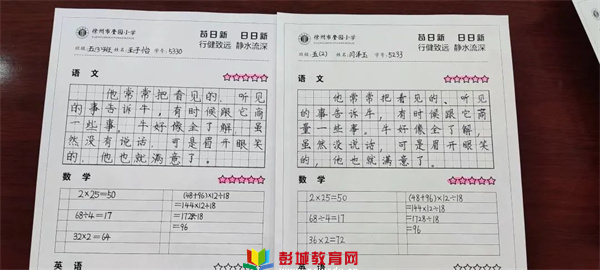 徐州市青园小学
苟日新 日日新
行健致远 静水流深
班级 姓名 王子怡 学号: 5330
语文
他常常把看见的、听见
的事告诉牛,有时候跟它商
量一些事。牛好像全了解,虽
然没有说话,可是眉开眼笑
的,他也就满意了。
数学
2×25=50
68÷4=17
32×2=64
(48+96)×12÷18
=144×12÷18
=1728÷18
=96
英语
徐州市青园小学
苟日新 日日新
行健致远 静水流深
班级 五(2) 姓名 学号: 5233
语文
他常常把看见的、听见
的事告诉牛,有时候跟它商
量一些事。牛好像全了解,
虽然没有说话,可是眉开眼笑
的,他也就满意了。
数学
2×25=50
68÷4=17
36×2=72
(48+96)×12÷18
=144×12÷18
=1728÷18
=96
彭城教育网